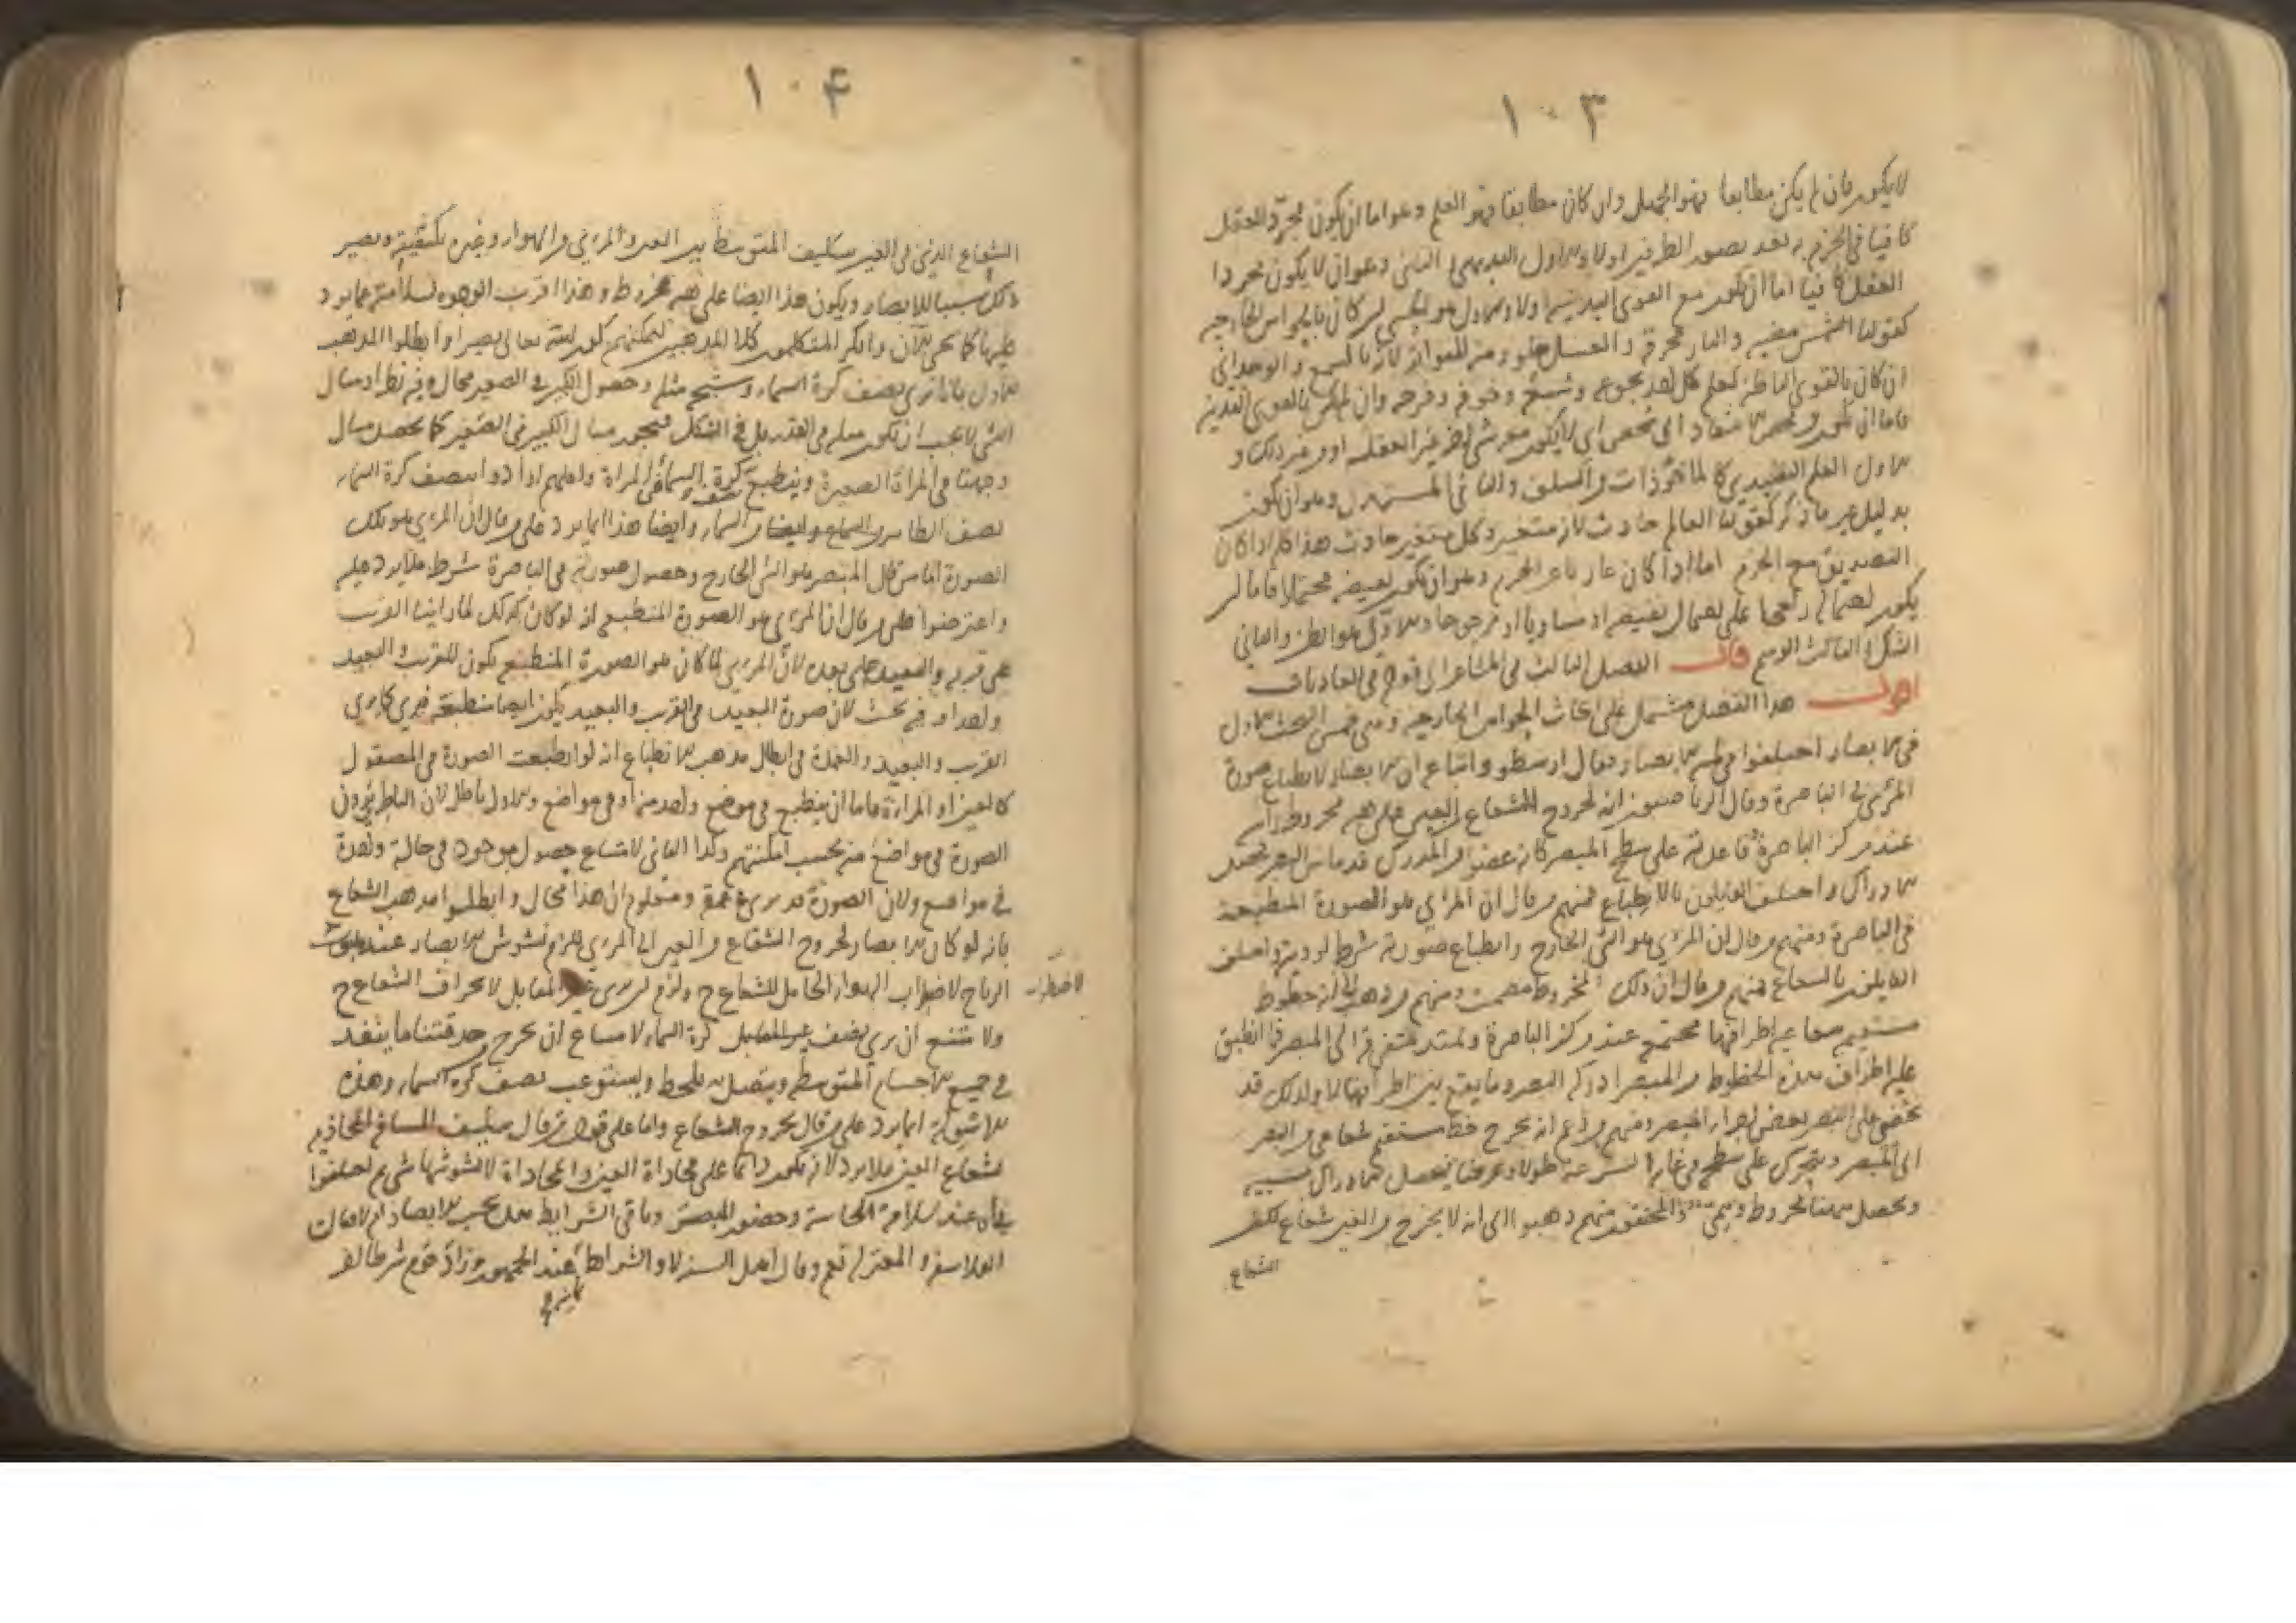 ١٠٣
لا يكون فان لم يكن مطابقا فهو الجهل وان كان مطابقا فهو العلم وهو اما ان يكون مجرد العقل
كافيا في الجزم به بعد تصور الطرفين اولا والاول البديهي الثاني وهو ان لا يكون مجردا
العقل كافيا اما ان يكون مع القوى البدنية اولا والاول هو الحسي ان كان بالحواس الخارجية
كقولنا الشمس مضيئة والنار محرقة والعسل حلو ومنه المتواتر لانه بالسمع والوجداني
ان كان بالقوى الباطنة كعلم كل احد بجوعه وشبعه وخوفه وفرحه وان لم يكن بالقوى البدنية
فاما ان يكون
الاول العلم التقليدي كالماخوذات من السلف والثاني المستدل وهو ان يكون
بدليل غير ما ذكر كقولنا العالم حادث لانه متغير وكل متغير حادث هذا كله اذا كان
التصديق مع الجزم اما اذا كان عاريا عن الجزم وهو ان يكون نقيضه محتملا فاما ان
يكون احتماله راجحا على احتمال نقيضه او مساويا او مرجوحا والاول هو الظن والثاني
الشك والثالث الوهم قال الفصل الثالث في المشاعر الى قوله في العاديات
اقول هذا الفصل مشتمل على ابحاث الحواس الخارجية وهي خمس البحث الاول
في الابصار اختلفوا في الابصار فقال ارسطو واتباعه ان الابصار لانطباع صورة
المرئي في الباصرة وقال الرياضيون انه لخروج الشعاع من العين على هيئة مخروط راسه
عند مركز الباصرة وقاعدته على سطح المبصر كانه عضو من المدرك قد ماس المبصر فحصل
الادراك واختلف القايلون بالانطباع فمنهم من قال ان المرئي هو الصورة المنطبعة
في الباصرة ومنهم من قال ان المرئي هو الشي الخارج وانطباع صورته شرط لرويته واختلف
القايلون بالشعاع فمنهم من قال ان ذلك المخروط مصمت ومنهم من ذهب الى انه خطوط
مستقيمة شعاعية اطرافها مجتمع عند مركز الباصرة وتمتد متفرقة الى المبصر فما انطبق
عليه اطراف هذه الخطوط من المبصر ادركه البصر وما يقع بين اطرافها لا ولذلك قد
يخفى على البصر بعض اجزاء المبصر ومنهم من زعم انه يخرج خط مستقيم شعاعي من البصر
الى المبصر ويتحرك على سطحه في غاية السرعة طولا وعرضا فيحصل الادراك بسببه
ويحصل هيئة مخروط والمحققون منهم ذهبوا الى انه لا يخرج من العين شعاع لكن
الشعاع
١٠۴
الشعاع الذي في العين يكيف المتوسط بين العين والمرئي من الهواء وغيره بكيفيته ويصير
ذلك سببا للابصار ويكون هذا ايضا على هيئة مخروط وهذا اقرب الوجوه لسلامته عما يرد
عليها كما يجي الآن وانكر المتكلمون كلا المذهبين لتمكنهم بكون الله تعالى بصيرا وابطلوا المذهب
الاول بانا نرى نصف كرة السماء وشبح مثله وحصول الكبير في الصغير محال وفيه نظر اذ مثال
الشي لا يجب ان يكون مثله في القدر بل في الشكل فيجوز مثال الكبير في الصغير كما يحصل مثال
وجهنا في المرآة الصغيرة وينطبع نصف كرة السماء في المرآة ولعلهم ارادوا بنصف كرة السماء
نصف الظاهر وايضا هذا انما يرد على من قال ان المرئي هو تلك
الصورة اما من قال المبصر هو الشي الخارج وحصول صورته في الباصرة شرط فلا يرد عليه
واعترضوا على من قال ان المرئي هو الصورة المنطبعة انه لو كان كذلك لما راينا القريب
على قربه والبعيد على بعده لان المرئي لما كان هو الصورة المنطبعة يكون للقريب والبعيد
واحدا وفيه بحث لان صورة البعد في القريب والبعيد يكون ايضا منطبعة فيرى كما يرى
القريب والبعيد والعمدة في ابطال مذهب الانطباع انه لو انطبعت الصورة في المصقول
كالعين او المرآة فاما ان ينطبع في موضع واحد منه او في مواضع والاول باطل لان الناظرين يرون
الصورة في مواضع منه بحسب امكنتهم وكذا الثاني لامتناع حصول موجود في حالة واحدة
في مواضع ولان الصورة قد يرى في عمقه ومعلوم ان هذا محال وابطلوا مذهب الشعاع
بانه لو كان الابصار لخروج الشعاع من العين الى المرئي للزم تشوش الابصار عند هبوب
الرياح لاضطراب الهواء الحامل للشعاع ح ولزم ان يرى غير المقابل لانحراف الشعاع ح
لاضطراب
ولامتنع ان يرى نصف كرة السماء لامتناع ان يخرج من حدقتنا ما ينفذ
في جميع الاجسام المتوسطة ويتصل بالمحيط ويستوعب نصف كرة السماء وهذه
الاسئلة انما يرد على من قال بخروج الشعاع واما على قول من قال بتكيف المسافة المحاذية
لشعاع العين فلا يرد لانه يكون دائما على محاذاة العين والمحاذاة لا يشوشها شي ثم اختلفوا
في انه عند سلامة الحاسة وحضور المبصر وباقي الشرايط هل يجب الابصار ام لا فقالت
الفلاسفة والمعتزلة نعم وقال اهل السنة لا والشرايط عند الجمهور وزاد قوم شرطا آخر
ثمانية